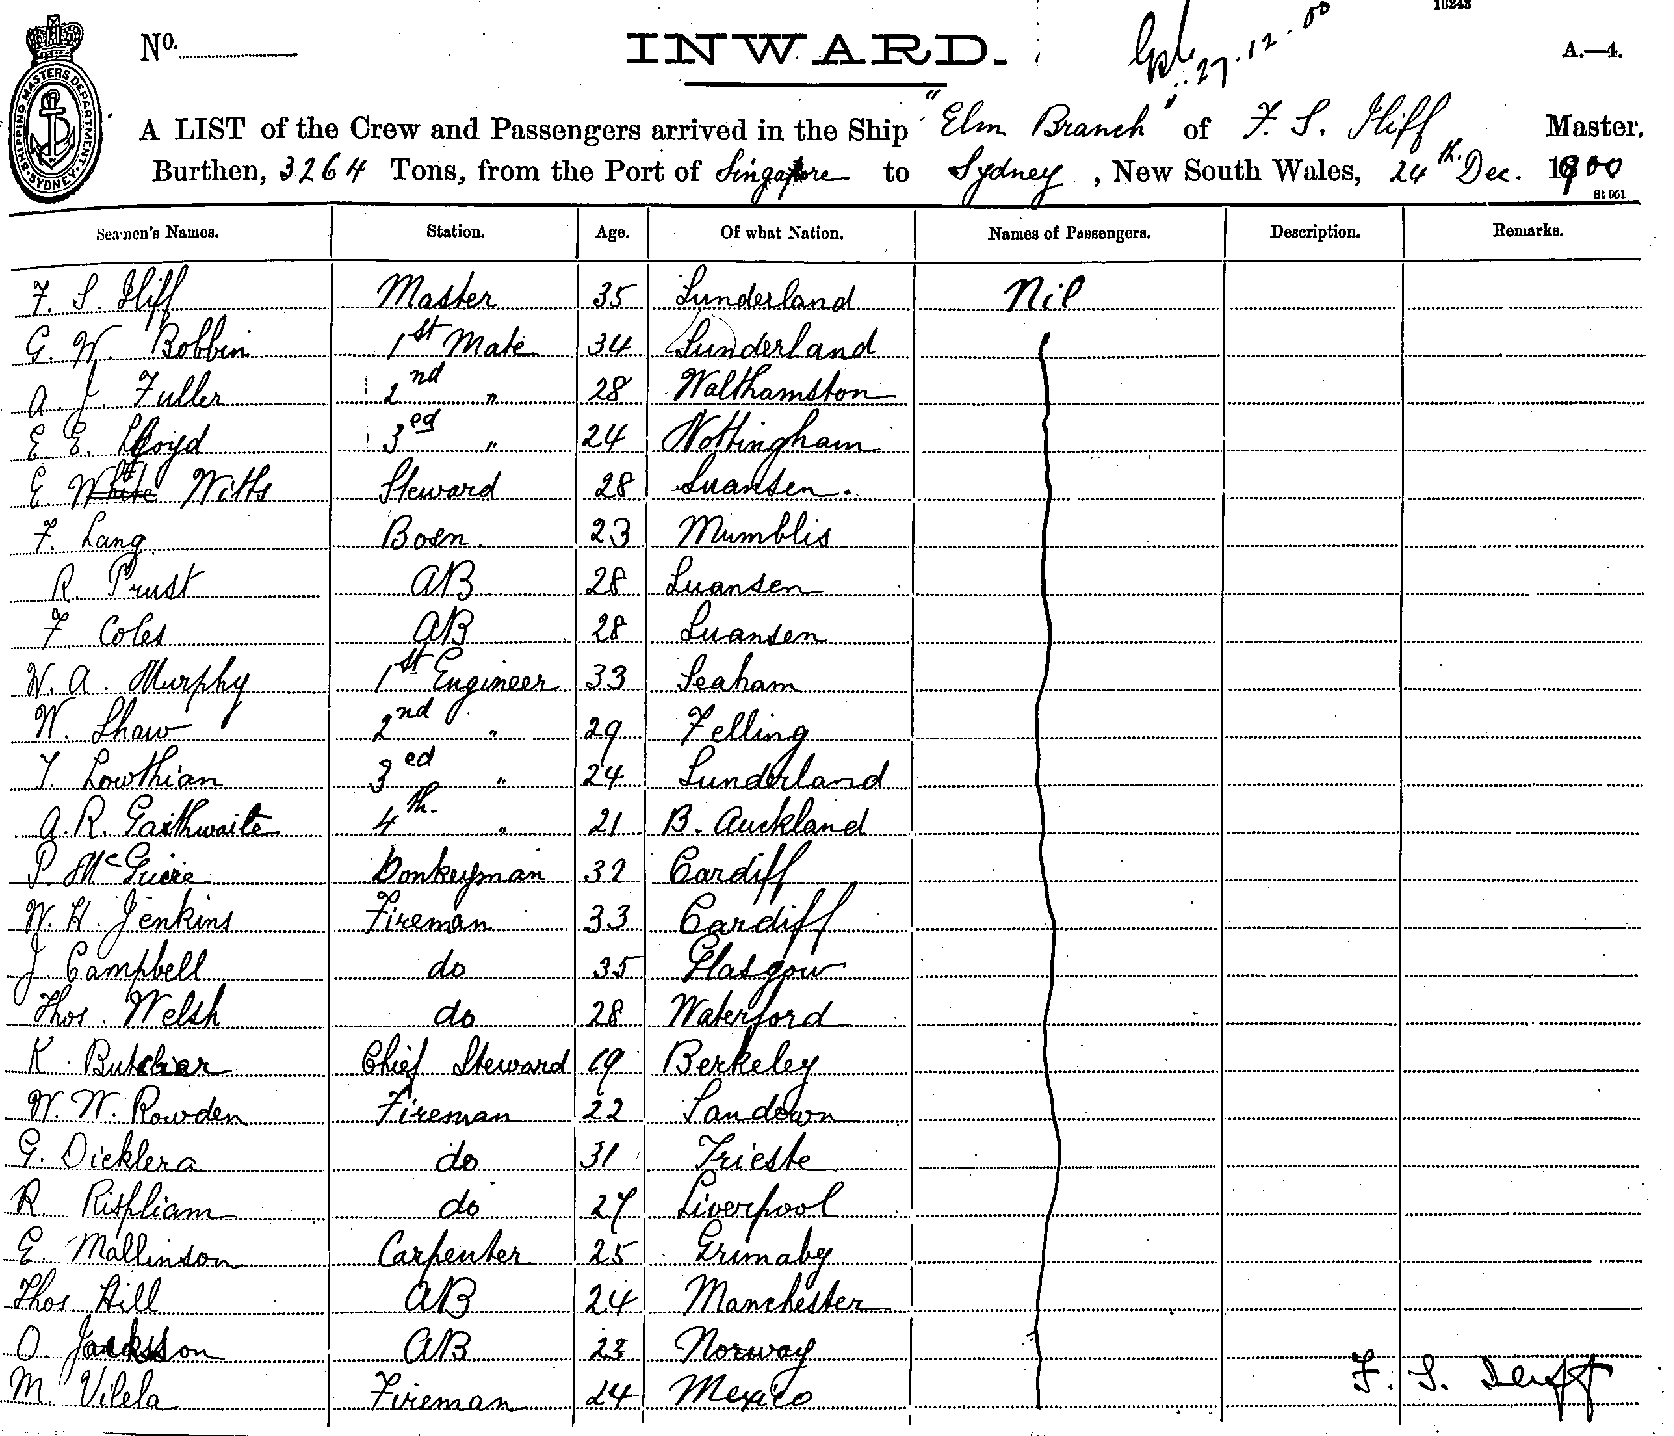 18243
No.
INWARD.
27.12.00
A.—4.
SHIPPING MASTERS DEPARTMENT SYDNEY
A LIST of the Crew and Passengers arrived in the Ship "Elm Branch" of F. S. Iliff Master,
Burthen, 3264 Tons, from the Port of Singapore to Sydney, New South Wales, 24th Dec. 1900
Seamen's Names. Station. Age. Of what Nation. Names of Passengers. Description. Remarks.
F. S. Iliff Master 35 Sunderland Nil
G. W. Bobbin 1st Mate 34 Sunderland
A. J. Fuller 2nd " 28 Walthamston
E E. Lloyd 3ed " 24 Nottingham
E White Witts Steward 28 Suansen.
F. Lang Bosn. 23 Mumblis
R. Prust AB 28 Suansen
F Coles AB 28 Suansen
W. A. Murphy 1st Engineer 33 Seaham
W. Shaw 2nd " 29 Felling
T. Lowthian 3ed " 24 Sunderland
A. R. Gaithwaite 4th. " 21 B. Auckland
P. McGuire Donkeyman 32 Cardiff
W. H. Jenkins Fireman 33 Cardiff
J Campbell do 35 Glasgow
Thos. Welsh do 28 Waterford
K. Butcher Chief Steward 19 Berkeley
W. W. Rowden Fireman 22 Sandown
G. Dicklera do 31 Trieste
R Rispliam do 27 Liverpool
E Mallinson Carpenter 25 Grimaby
Thos Hill AB 24 Manchester
O. Jackson AB 23 Norway
M. Vilela Fireman 24 Mexico
F. S. Iliff